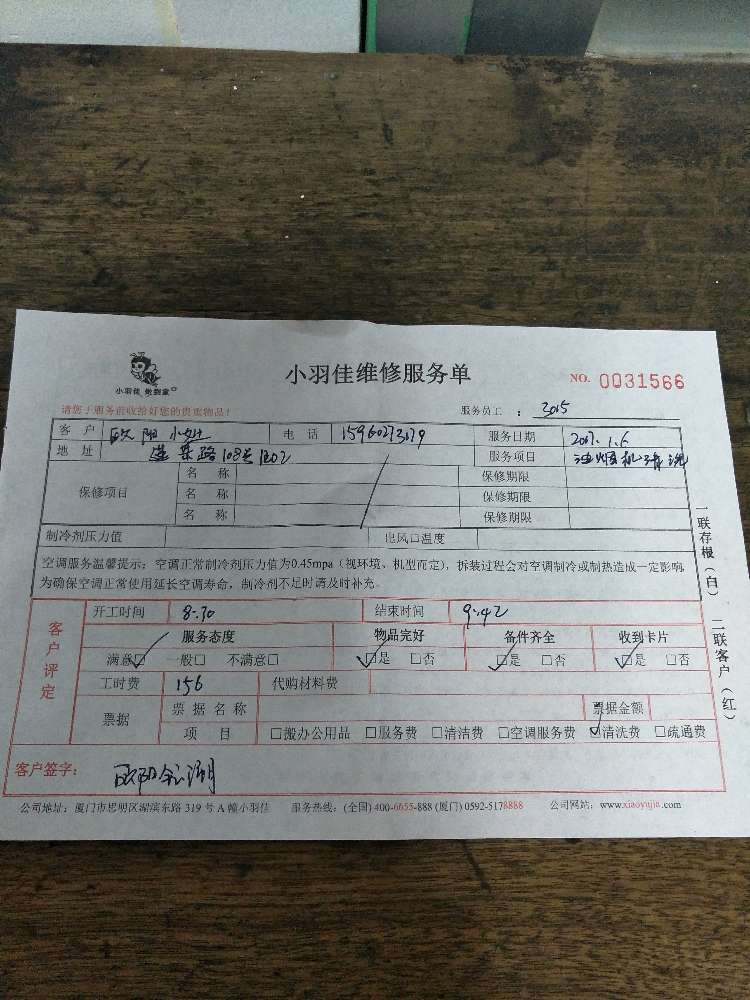 小羽佳 做到家
小羽佳维修服务单
NO. 0031566
请您于服务前收拾好您的贵重物品！
服务员工 ： 3015
客 户 欧阳小姐 电 话 15960273179 服务日期 2017.1.6
地 址 莲景路108号1202 服务项目 油烟机清洗
保修项目
名 称 保修期限
名 称 保修期限
名 称 保修期限
制冷剂压力值 出风口温度
空调服务温馨提示：空调正常制冷剂压力值为0.45mpa（视环境、机型而定），拆装过程会对空调制冷或制热造成一定影响
为确保空调正常使用延长空调寿命，制冷剂不足时请及时补充。
客户评定
开工时间 8:30 结束时间 9:42
服务态度 物品完好 备件齐全 收到卡片
满意☑ 一般□ 不满意□ ☑是 □否 ☑是 □否 ☑是 □否
工时费 156 代购材料费
票据 票据名称 票据金额
项 目 □搬办公用品 □服务费 □清洁费 □空调服务费 ☑清洗费 □疏通费
客户签字：欧阳
公司地址：厦门市思明区湖滨东路 319 号 A 幢小羽佳 服务热线：(全国) 400-6655-888 (厦门) 0592-5178888 公司网站：www.xiaoyujia.com
一联存根（白） 二联客户（红）